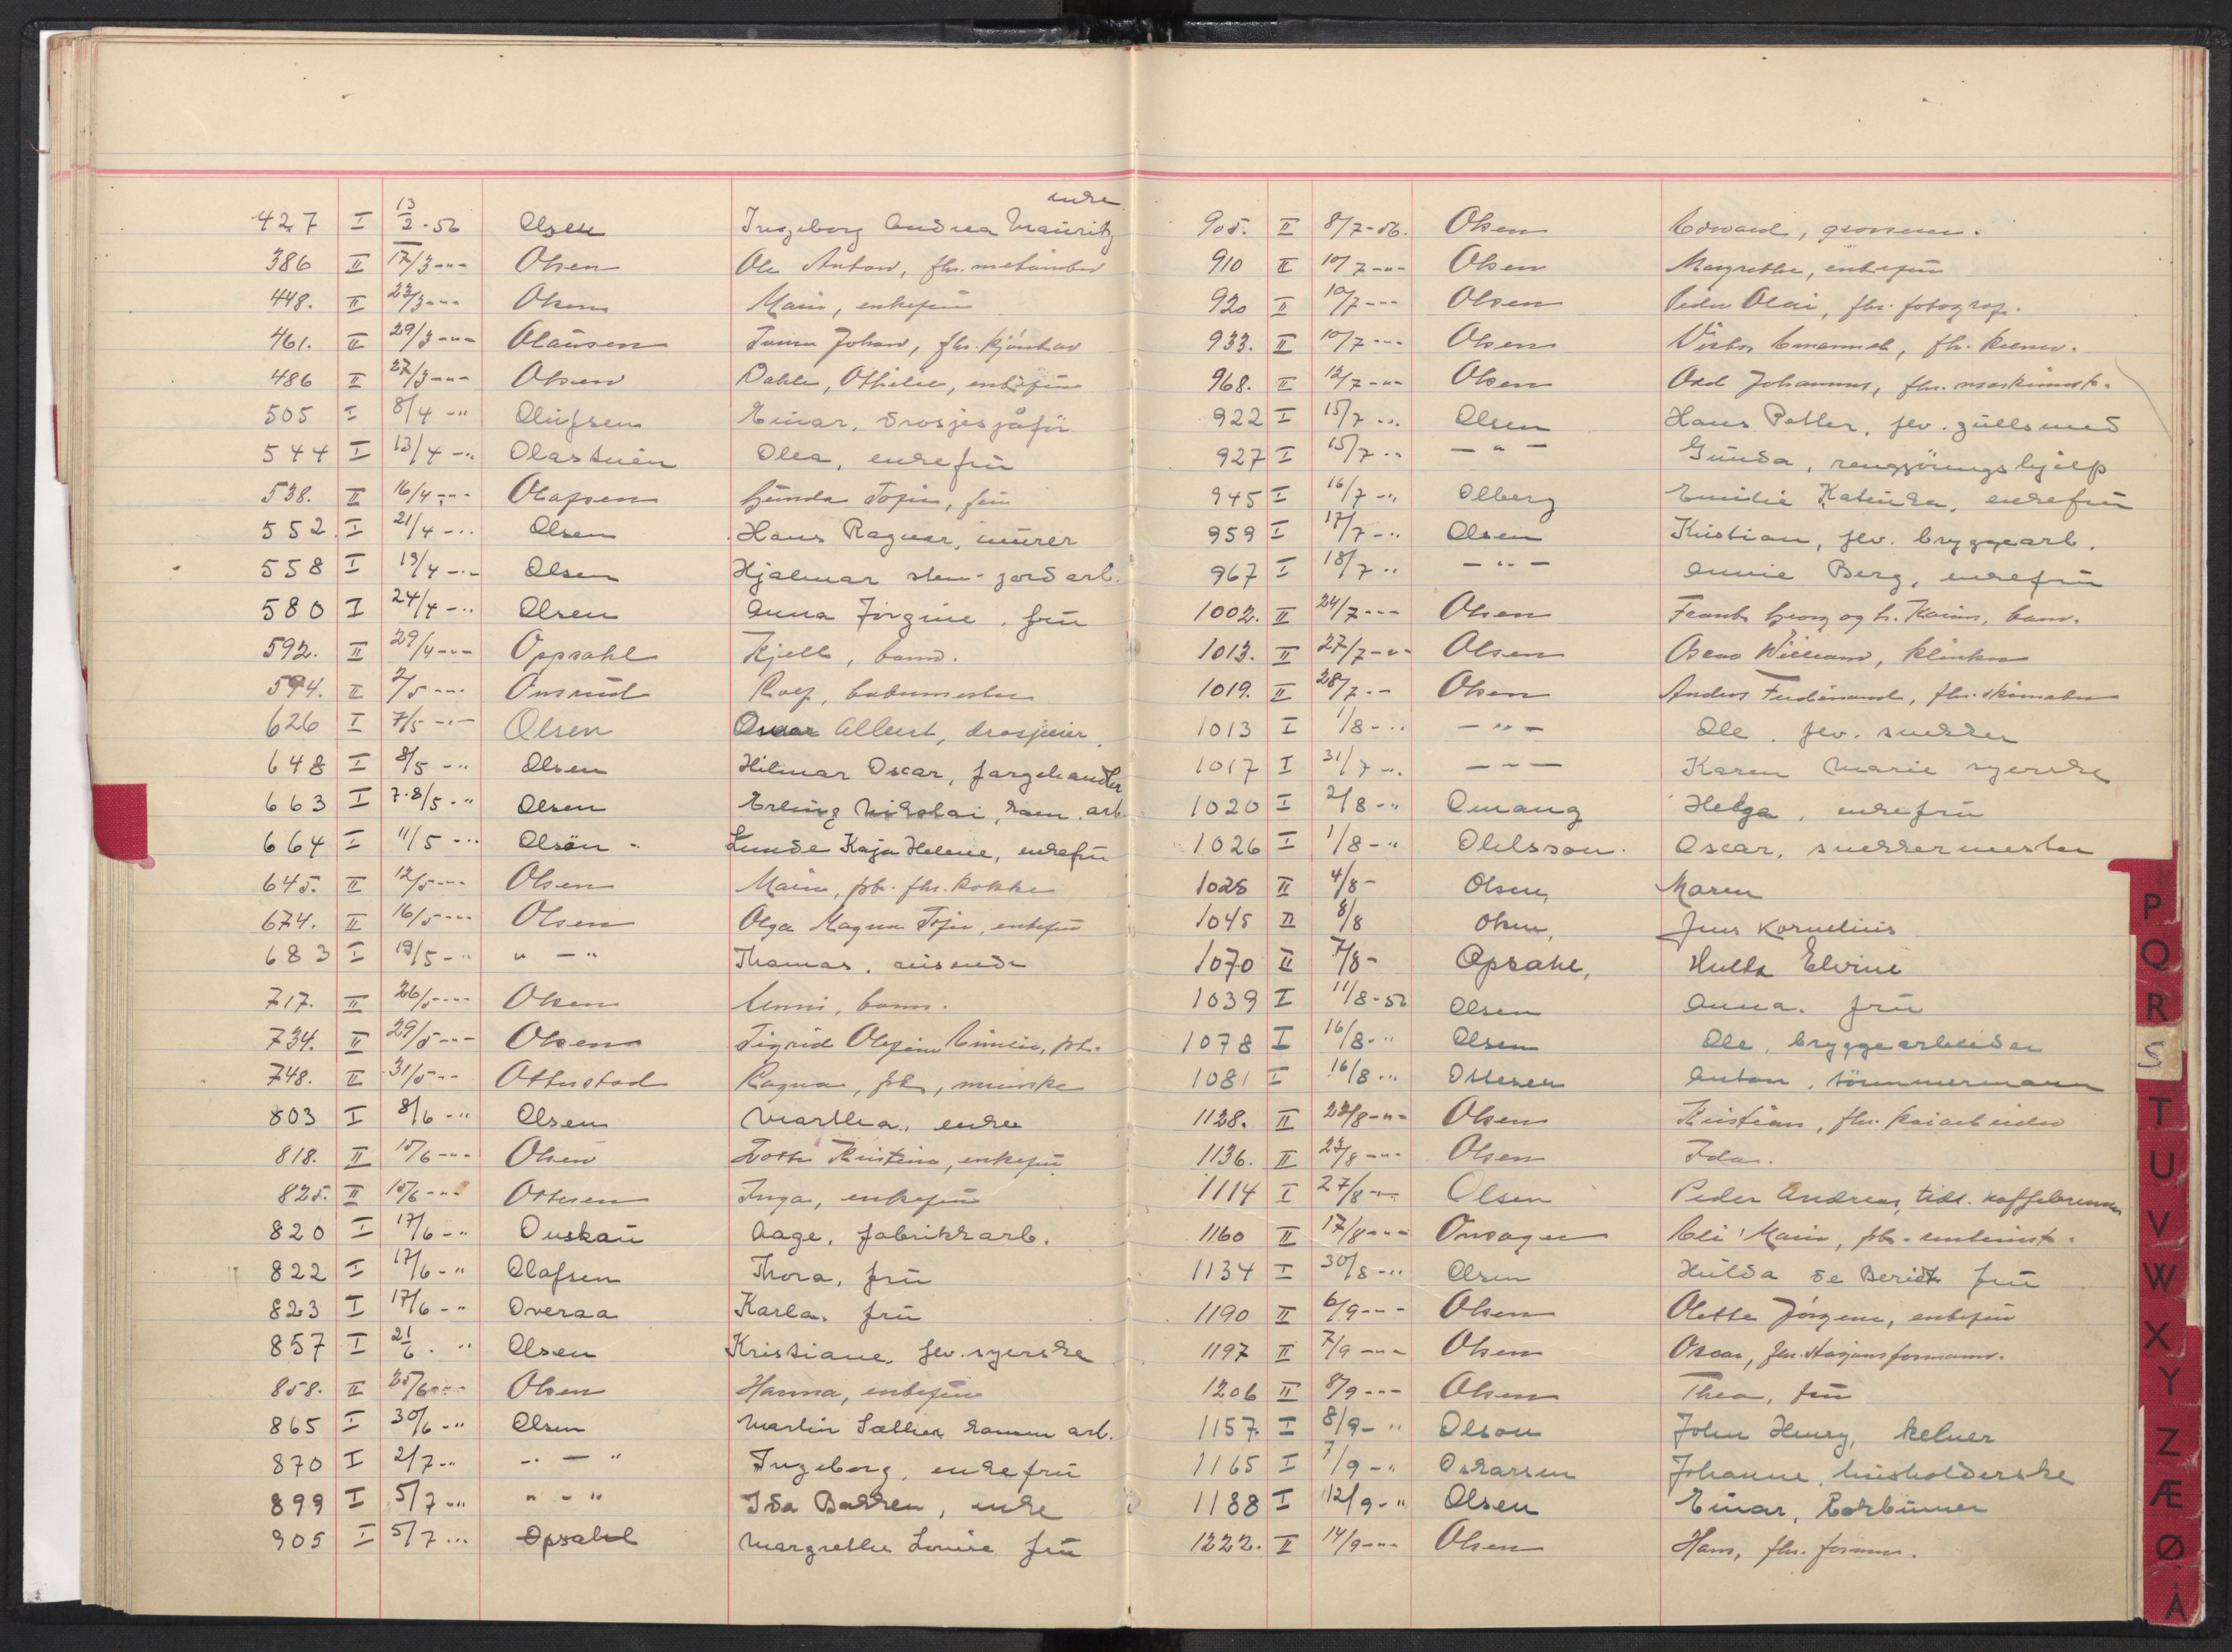 enke
427 I 13/2-56 Olsen Ingeborg Andrea Mauritz
386 II 17/3 -"- Olsen Ole Anton, fhv.
448. II 23/3 -"- Olsen Marie, enkefru
461. II 29/3 -"- Olausen Johan, fhv.
486 II 27/3 -"- Olsen Dahle, Othilie, enkefru
505 I 8/4 -" Olufsen Einar, drosjesjåför
544 I 13/4 -" Olastuen Olea, enkefru
538. II 16/4 -"- Olafsen Gunda Sofie, fru
552 I 21/4 -" Olsen Hans Ragnar, murer
558 I 19/4 -"- Olsen Hjalmar sten-jordarb.
580 I 24/4 -" Olsen Anna Jörgine, fru
592. II 29/4 -"- Oppsahl Kjell, barn.
594. II 2/5 -"- Omsrud Rolf,
626 I 7/5 -"- Olsen Oscar Albert, drosjeeier
648 I 8/5 -" Olsen Hilmar Oscar, fargehandler
663 I 7-8/5 -" Olsen Erling Nikolai, kom. arb.
664 I 11/5 -" Olsön - Lunde Kaja Helene, enkefru
645. II 12/5 -"- Olsen Marie, pb. fhv. kokke
674. II 16/5 -"- Olsen Olga Magna Sofie, enkefru
683 I 19/5 -" " - " Thomas, reisende
717. II 26/5 -"- Olsen Unni, barn.
734. II 29/5 -"- Olsen Sigrid Olefine Emilie, pb.
748. II 31/5 -"- Otterstad Ragna, pb,
803 I 8/6 -" Olsen Martha, enke
818. II 15/6 -"- Olsen Lotte Kristine, enkefru
825. II 15/6 -"- Ottesen Inga, enkefru
820 I 17/6 -" Ouskau Aage, fabrikkarb.
822 I 17/6 -" Olafsen Thora, fru
823 I 17/6 -" Overaa Karla, fru
857 I 21/6 - " Olsen Kristiane, fev. syerske
858. II 25/6 -"- Olsen Hanna, enkefru
865 I 30/6 -" Olsen Martin Sæther komm arb.
870 I 2/7 -" " - " Ingeborg, enkefru
899 I 5/7 -" " - " Ida Bakken, enke
905 I 5/7 -" Opsahl Margrethe Louise fru
905. II 8/7-56. Olsen Edvard, grosserer.
910 II 10/7 -"- Olsen Margrethe, enkefru
920 II 10/7 -"- Olsen Peder Olai, fhv. fotograf.
933. II 10/7 -"- Olsen Victor Emanuel, fh. kelner.
968. II 12/7 -"- Olsen Odd Johannes, fhv. maskinist.
922 I 15/7 -" Olsen Hans Petter, fev. gullsmed
927 I 15/7 -" - " - Gunda, rengjöringshjelp
945 I 16/7 -" Olberg Emilie Katinka, enkefru
959 I 17/7 -" Olsen Kristian, fev. bryggearb.
967 I 18/7 -" - " - Annie Berg, enkefru
1002. II 24/7 -"- Olsen Frants Georg og h. Karin, barn.
1013. II 27/7 -"- Olsen Oscar William,
1019. II 28/7 -"- Olsen Anders Ferdinand, fhv. skomaker
1013 I 1/8 -" - " - Ole, fev. snekker
1017 I 31/7 -" - " - Karen Marie syerske
1020 I 2/8 -" Omang Helga, enkefru
1026 I 1/8 -" Ohlsson. Oscar, snekkermester
1025 II 4/8 - Olsen, Maren
1045 II 8/8 Olsen, Jens Kornelius
1070 II 7/8 - Opsahl, Hulda Elvine
1039 I 11/8-56 Olsen Anna. fru
1078 I 16/8 -" Olsen Ole, bryggearbeider
1081 I 16/8 -" Ottesen Anton, tömmermann
1128. II 22/8 -"- Olsen Kristian, fhv. kaiarbeider
1136. II 23/8 -"- Olsen Ida.
1114 I 27/8 -"- Olsen Peder Andreas, tidl. kaffebrenner
1160 II 17/8 -"- Onsager Marie, pb.
1134 I 30/8 -" Olsen Hulda de Bericht fru
1190 II 6/9 -"- Olsen Olette Jörgine, enkefru
1197 II 7/9 -"- Olsen Oscar, fhv. stasjonsformann.
1206 II 8/9 -"- Olsen Thea, fru
1157. I 8/9 -" Olson John Henry, kelner
1165 I 7/9 -" Oskarsen Johanne, husholderske
1188 I 12/9 -" Olsen Einar,
1222. II 14/9 -"- Olsen Hans, fhv. former.
P
Q
R
S
T
U
V
W
X
Y
Z
Æ
Ø
Å